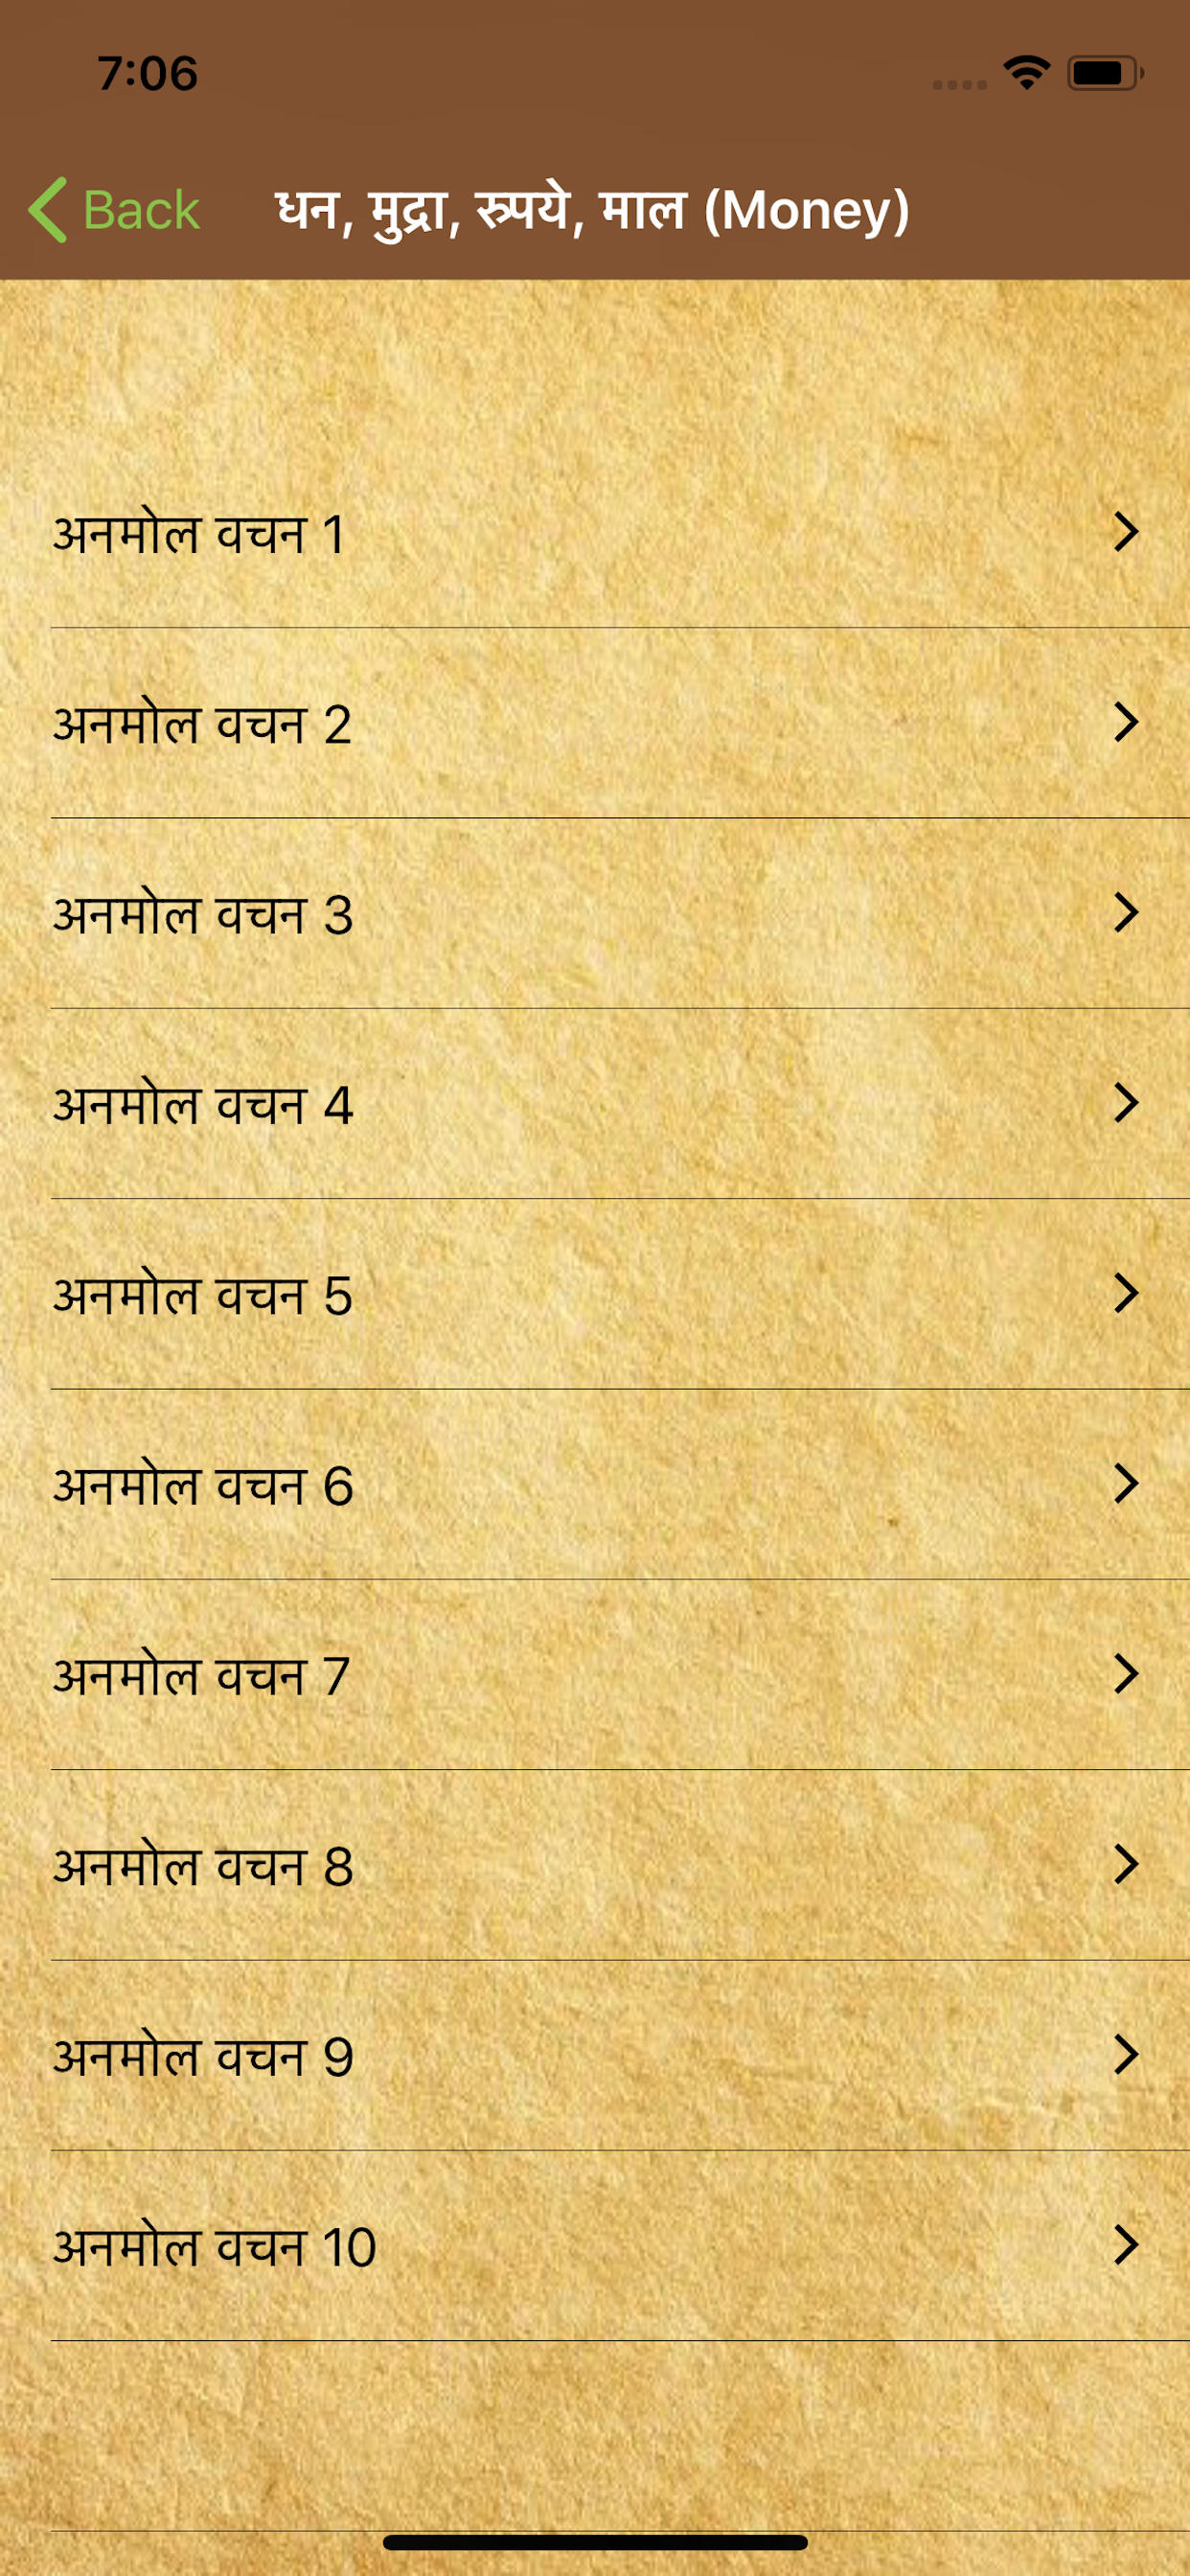 7:06
Back धन, मुद्रा, रुपये, माल (Money)
अनमोल वचन 1
अनमोल वचन 2
अनमोल वचन 3
अनमोल वचन 4
अनमोल वचन 5
अनमोल वचन 6
अनमोल वचन 7
अनमोल वचन 8
अनमोल वचन 9
अनमोल वचन 10